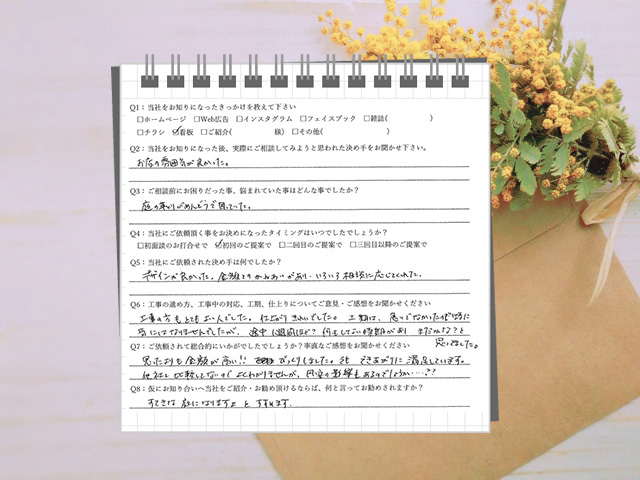 Q1：当社をお知りになったきっかけを教えて下さい
□ホームページ □Web広告 □インスタグラム □フェイスブック □雑誌( )
□チラシ ☑看板 □ご紹介( 様) □その他( )
Q2：当社をお知りになった後、実際にご相談してみようと思われた決め手をお聞かせ下さい。
お店の雰囲気が良かった。
Q3：ご相談前にお困りだった事、悩まれていた事はどんな事でしたか？
庭の草刈りがめんどうで困っていた。
Q4：当社にご依頼頂く事をお決めになったタイミングはいつでしたでしょうか？
□初面談のお打合せで ☑初回のご提案で □二回目のご提案で □三回目以降のご提案で
Q5：当社にご依頼された決め手は何でしたか？
デザインが良かった。金額との かねあいがあり、いろいろ相談に応じてくれた。
Q6：工事の進め方、工事中の対応、工期、仕上りについてご意見・ご感想をお聞かせください
工事の方もとてもよい人でした。仕上がりきれいでした。工期は、急いでなかったので特に
気にはなりませんでしたが、途中1週間ほど？何もしない時期があり まだかな？と
思いました。
Q7：ご依頼されて総合的にいかがでしたでしょうか？率直なご感想をお聞かせください
思ったよりも金額が高い!! びっくりしました。でも できあがりに満足しています。
他社と比較してないのでよくわかりませんが、円安の影響もあるのでしょうか…??
Q8：仮にお知り合いへ当社をご紹介・お勧め頂けるならば、何と言ってお勧めされますか？
すてきな庭になりますよ とすすめます。